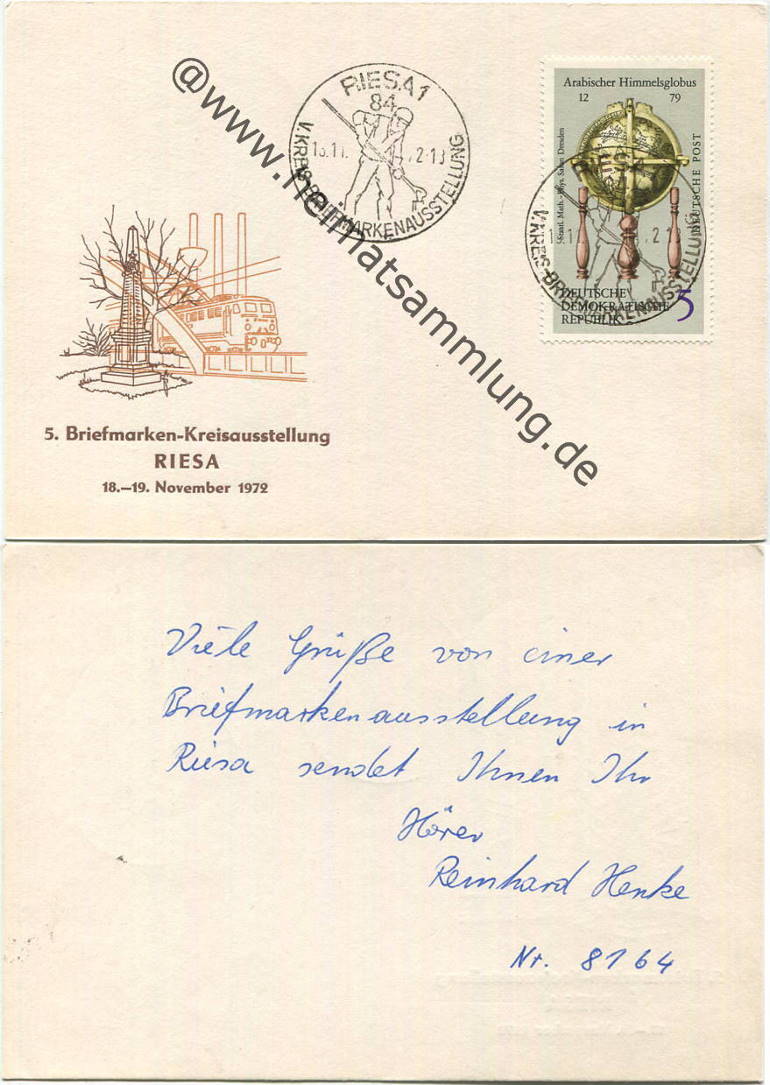 RIESA 1
84
V. KREIS-BRIEFMARKENAUSSTELLUNG
Arabischer Himmelsglobus
12 79
Staatl. Math.-Phys. Salon Dresden
DEUTSCHE POST
DEUTSCHE
DEMOKRATISCHE
REPUBLIK
5
RIESA
V. KREIS-BRIEFMARKENAUSSTELLUNG
@www.heimatsammlung.de
5. Briefmarken-Kreisausstellung
RIESA
18.–19. November 1972
Viele Grüße von einer
Briefmarkenausstellung in
Riesa sendet Ihnen Ihr
Hörer
Reinhard Henke
Nr. 8164